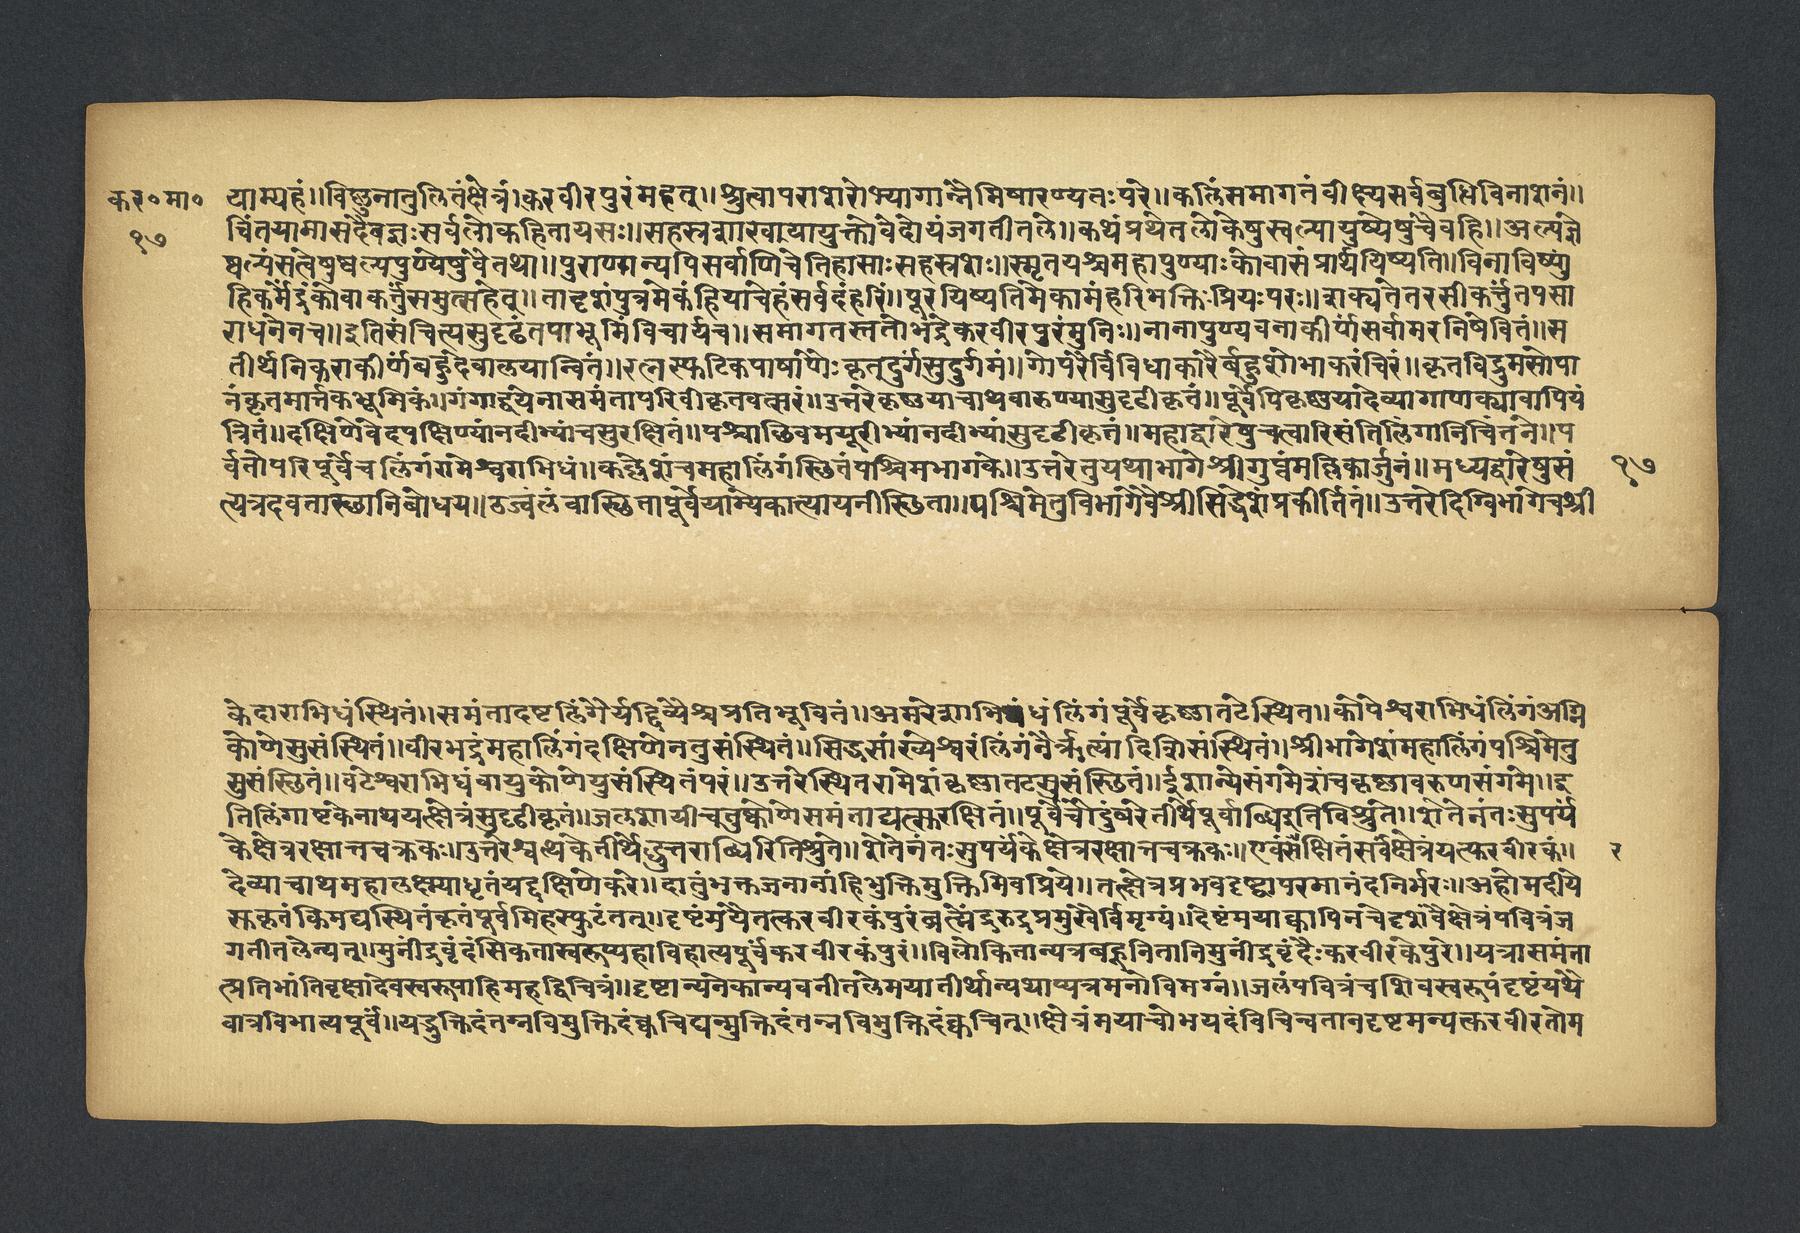 कर॰मा॰ याम्यहं॥विष्णुनातुलितंक्षेत्रं।करवीरपुरंमहत्॥श्रुत्वापराशरोभ्यागान्नैमिषारण्यतःपरे॥कलिंसमागतंवीक्ष्यसर्वबुधिविनाशनं॥
१७ चिंतयामासदैवज्ञःसर्वलोकहितायसः॥सहस्त्रशाखाध्यायुक्तोवेदोयंजगतीतले॥कथंप्रथेतलोकेषुस्वल्पायुष्येषुचैवहि॥अल्पप्रज्ञे
ष्वल्पंसत्वेषुष्वल्पपुण्येषुवैतथा॥पुराणान्यपिसर्वाणिचेतिहासाःसहस्त्रशः॥स्मृतयश्चमहापुण्याःकोवासंप्रार्थयिष्यति॥विनाविष्णुं
हिकर्मेदंकोवाकर्तुंसमुत्सहेत्॥तादृशंपुत्रमेकंहियाचेहंसर्वदंहरिं॥पूरयिष्यतिमेकामंहरिभक्तिप्रियःपरः॥शक्यतेतरसीकर्त्तुंतपसा
राधनेनच॥इतिसंचिंत्यसुदृढंतपोभूमिंविचार्यच॥समागतस्ततोभद्रेकरवीरपुरंमुनिः॥नानापुण्यचनाकीर्णंसर्वामरनिषेवितं॥स
तीर्थनिकराकीर्णंबहुदेवालयान्वितं॥रत्नस्फटिकपाषाणैःकृतदुर्गंसुदुर्गमं॥गोपुरैर्विविधाकारैर्बहुशोभाकरंचिरं॥कृतविद्रुमसोपा
नंकृतमार्नकभूमिकं॥गंगाहृयेनासमंतापरिवीकृतवत्सरं॥उत्तरेकृष्णयाचाथवारुण्यासुदृढीकृतं॥पूर्वेपिकृष्णयादेव्यागाणक्यावापियं
त्रितं॥दक्षिणेवेदपक्षिण्यांनदीभ्यांचसुरक्षितं॥पश्चाछिवमयूरीभ्यांनदीभ्यांसुदृढीकृतं॥महाद्वारेषुचत्वारिसंतिलिंगानिचिंतने॥प
र्वतोपरिपूर्वेचलिंगंरामेश्वराभिधं॥कल्लेशंचमहालिंगंस्छितंपश्चिमभागके॥उत्तरेतुयथाभागेश्रीगुप्तंमल्लिकार्जुनं॥मध्यद्वारेषुसं १७
त्यत्रदेवतास्छानिबोधय॥ठज्वलंबास्छितापूर्वेयाम्येकात्यायनीस्छिता॥पश्चिमेतुविभागेवैश्रीसिद्धेशंप्रकीर्तितं॥उत्तरेदिग्विभागेचश्री
केदाराभिधंस्थितं॥समंतादष्टलिंगैर्यद्दिव्यैश्चप्रतिभूषितं॥अमरेशाभिधंलिंगंपूर्वेकृष्णातटेस्थितं॥कोपेश्वराभिधंलिंगंअग्नि
कोणेसुसंस्थितं॥वीरभद्रंमहालिंगंदक्षिणेननुसंस्थितं॥सिद्धसांख्येश्वरंलिंगंनैर्ऋत्यांदिशिसंस्थितं॥श्रीभागेशंमहालिंगंपश्चिमेतु
सुसंस्छितं॥वटेश्वराभिधंवायुकोणेयुसंस्थितंपरं॥उत्तरेस्थितरामेशंकृष्णातटसुसंस्छितं॥ईशान्येसंगमेशंचकृष्णावरुणसंगमे॥इ
तिलिंगाष्टकेनाथयत्क्षेत्रंसुदृढीकृतं॥जलशायीचतुष्कोणेसमंताद्यत्स्करक्षितं॥पूर्वेचौदुंबरेतीर्थेपूर्वाब्धिरितिविश्रुते॥शेतेनंतःसुपर्य
केक्षेत्ररक्षात्तचक्रकः॥उत्तरेश्वत्थकेतीर्थेद्युत्तराब्धिरितिश्रुते॥शेतेनंतःसुपर्यंकेक्षेत्ररक्षात्तचक्रकः॥एवंसंक्षितंसर्वंक्षेत्रंयत्करवीरकं॥ र
देव्याचाथमहालक्ष्म्याधृतंयद्दक्षिणेकरे॥दातुंभक्तजनानांहिभुक्तिमुक्तिमिवप्रिये॥तत्क्षेत्रप्रभवदृष्ट्वापरमानंदनिर्भरः॥अहोमदीये
स्कृतंकिमद्यस्थितंकृतंपूर्वमिहस्फुटंतत्॥दृष्टंमयैतत्करवीरकंपुरंब्रत्मेंद्ररुद्रप्रमुखैर्विमृग्यं॥देष्टंमयाक्कापिनचेदृशंवैक्षेत्रंपवित्रंज
गतीतलेन्यत्॥मुनींद्रवृंदंसिकतास्वरूप्यहाविहात्यपूर्वंकरवीरकंपुरं॥विलोकितान्यत्रबहूनितानिमुनींद्रवृंदैःकरवीरकेपुरे॥यत्रासमंता
त्प्रतिभांतिवृक्षादेवस्वरूपाहिमहद्विचित्रं॥दृष्टान्यनेकान्यवनीतलेमयातीर्थान्यथाप्यत्रमनोविमग्नं॥जलंपवित्रंचशिवस्वरूपंदृष्टंयथै
वात्रविभात्यपूर्वं॥यद्भुक्तिदंतन्नविमुक्तिदंक्कचिद्यन्मुक्तिदंतन्नविभुक्तिदंक्कचित्॥क्षेत्रंमयाचोभयदंविचिन्वतानदृष्टमन्यत्करवीरतोम